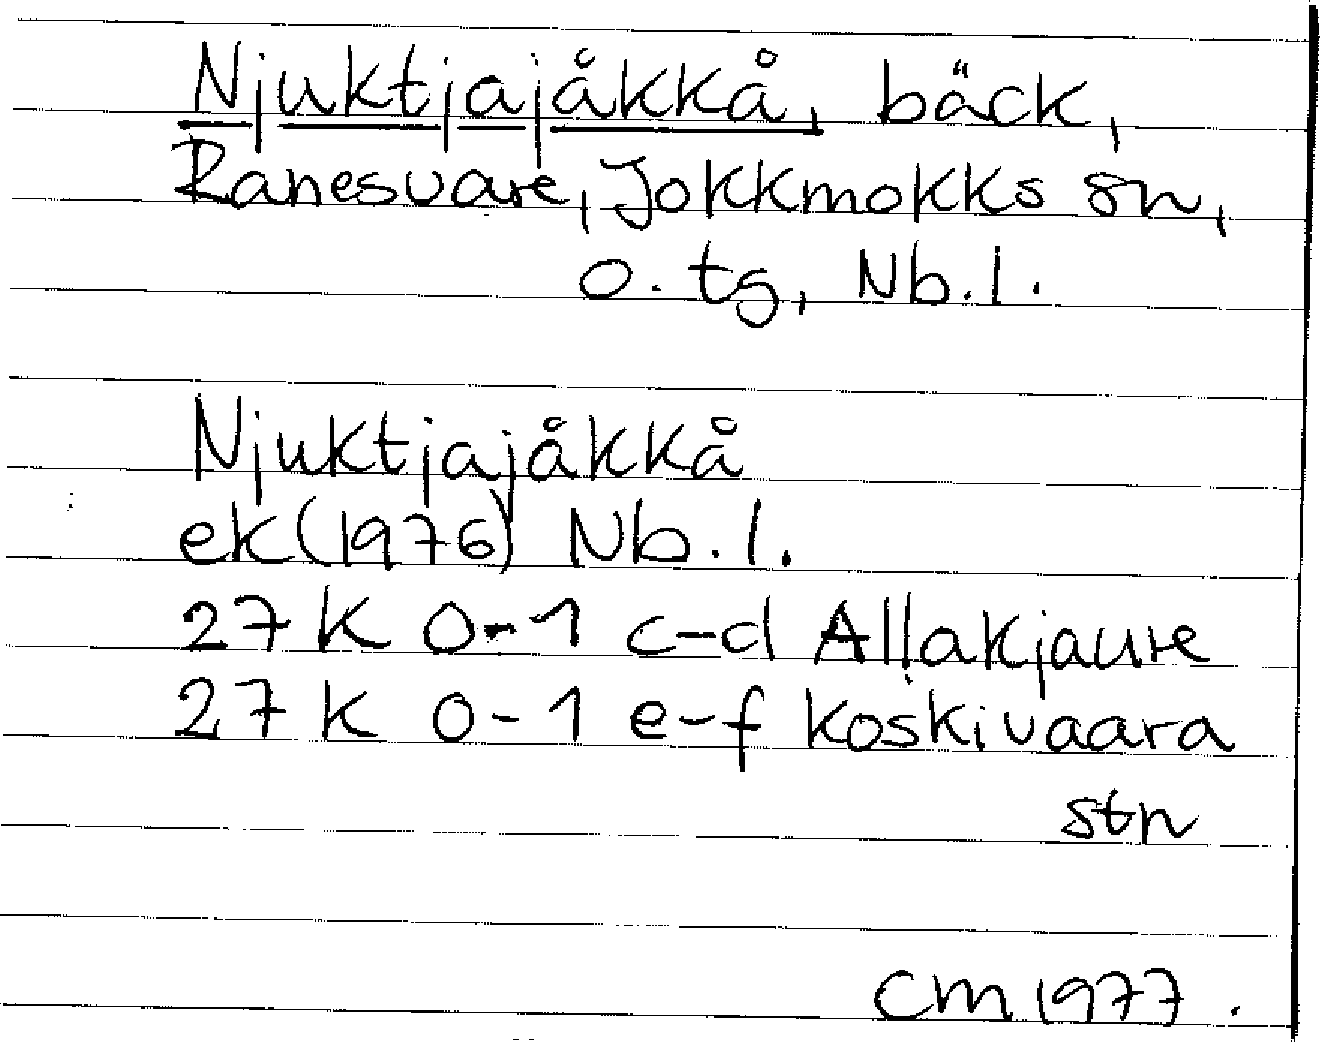 Njuktjajåkkå, bäck,
Ranesvare, Jokkmokks sn,
o. tg, Nb.l.
Njuktjajåkkå
ek(1976) Nb.l.
27 K 0-1 c-d Allakjaure
27 K 0-1 e-f Koskivaara
stn
CM 1977.